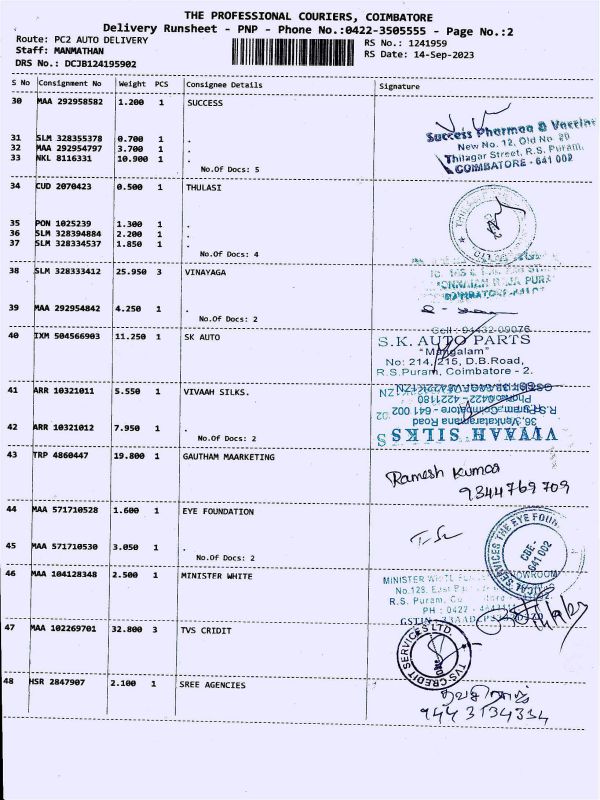 THE PROFESSIONAL COURIERS, COIMBATORE
Delivery Runsheet - PNP - Phone No.:0422-3505555 - Page No.:2
Route: PC2 AUTO DELIVERY
RS No.: 1241959
Staff: MANMATHAN
RS Date: 14-Sep-2023
DRS No.: DCJB124195902
S No Consignment No Weight PCS Consignee Details Signature
30 MAA 292958582 1.200 1 SUCCESS
Success Pharmaa & Vaccine
New No. 12, Old No. 20
Thilagar Street, R.S. Puram,
COIMBATORE - 641 002
31 SLM 328355378 0.700 1 .
32 MAA 292954797 3.700 1 .
33 NKL 8116331 10.900 1 .
No.Of Docs: 5
34 CUD 2070423 0.500 1 THULASI
35 PON 1025239 1.300 1 .
36 SLM 328394884 2.200 1 .
37 SLM 328334537 1.850 1 .
No.Of Docs: 4
38 SLM 328333412 25.950 3 VINAYAGA
39 MAA 292954842 4.250 1 .
No.Of Docs: 2
40 IXM 504566903 11.250 1 SK AUTO
Cell : 94432-09076
S.K. AUTO PARTS
"Mangalam"
No: 214, 215, D.B.Road,
R.S.Puram, Coimbatore - 2.
41 ARR 10321011 5.550 1 VIVAAH SILKS.
Phone: 0422 - 4221180
R.S.Puram, Coimbatore - 641 002
36, Venkataramana Road
VIVAAH SILKS
42 ARR 10321012 7.950 1 .
No.Of Docs: 2
43 TRP 4860447 19.800 1 GAUTHAM MAARKETING
Ramesh Kumar
9344769709
44 MAA 571710528 1.600 1 EYE FOUNDATION
CBE -
641 002
45 MAA 571710530 3.050 1 .
No.Of Docs: 2
46 MAA 104128348 2.500 1 MINISTER WHITE
MINISTER WHITE SHOWROOM
R.S. Puram,
PH : 0422 -
47 MAA 102269701 32.800 3 TVS CRIDIT
TVS CREDIT SERVICES LTD.
48 HSR 2847907 2.100 1 SREE AGENCIES
9443134334